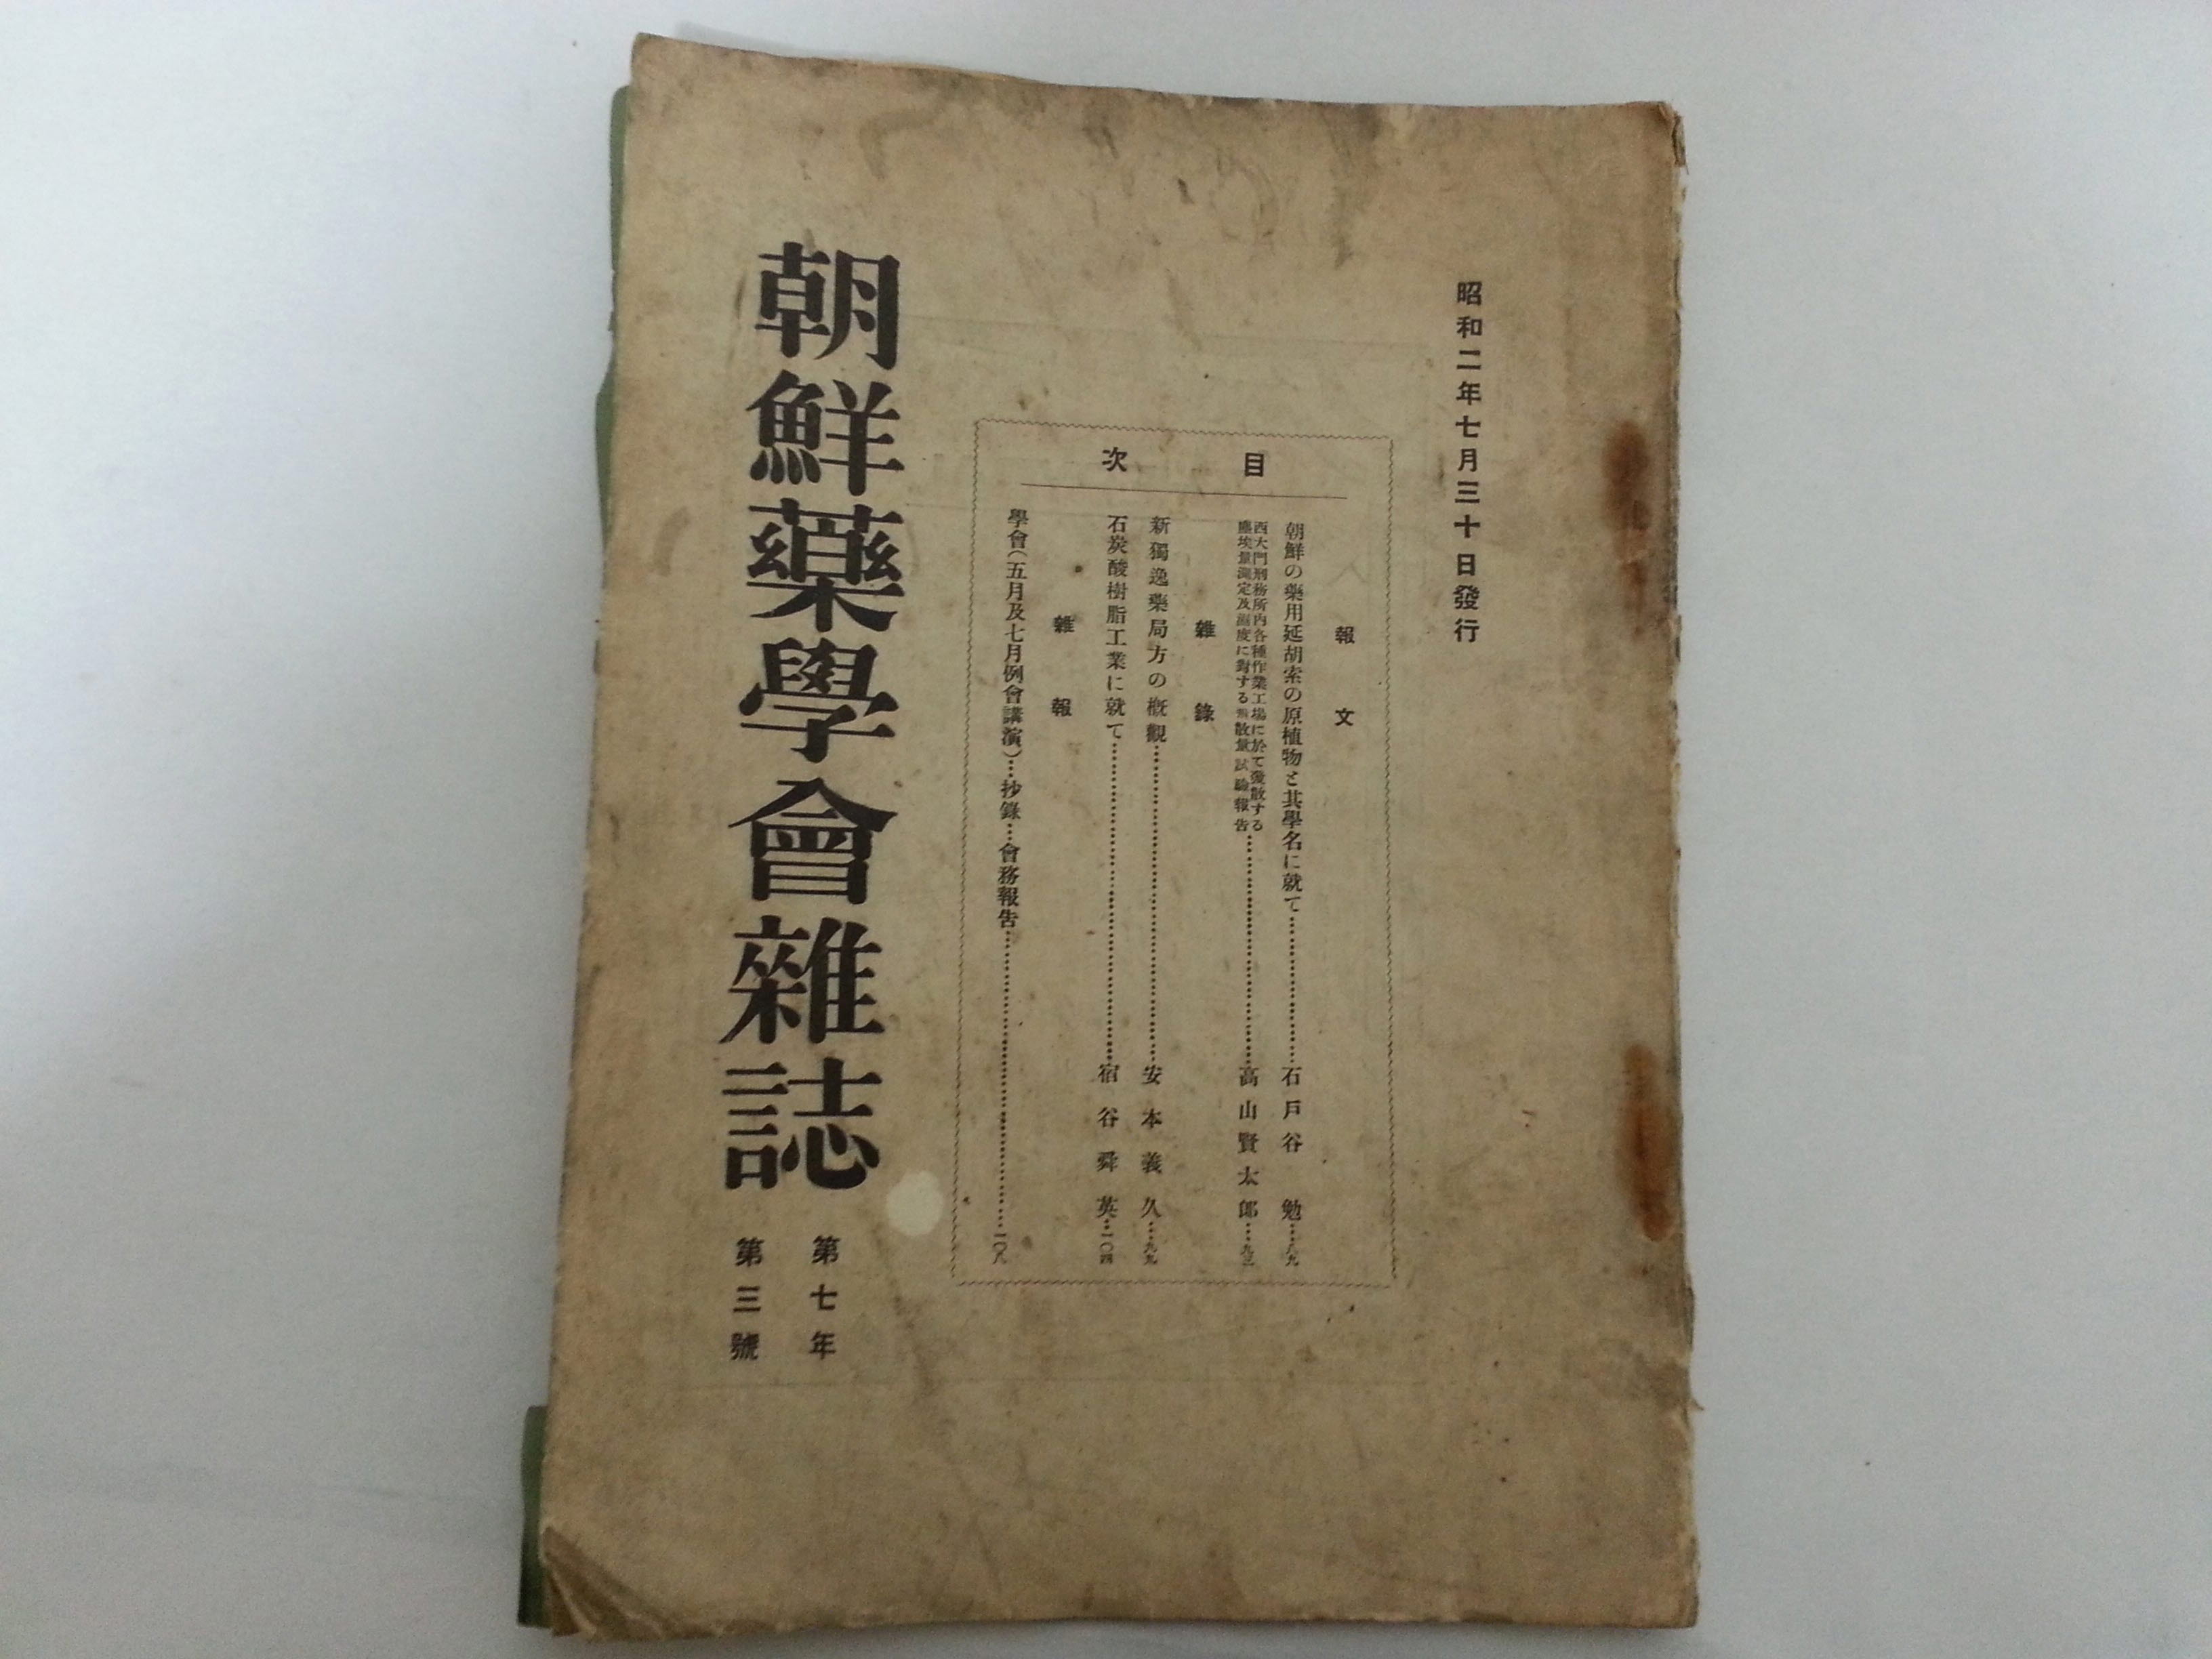 昭和二年七月三十日發行
目次
報文
朝鮮の藥用延胡索の原植物と其學名に就て……石戸谷勉…八九
西大門刑務所內各種作業工場に於て發散する
塵埃量測定及濕度に對する 散量試驗報告……高山賢太郎…九三
雜錄
新獨逸藥局方の概觀……安本義久…九九
石炭酸樹脂工業に就て……宿谷舜英…一〇四
雜報
學會(五月及七月例會講演)…抄錄…會務報告……一〇八
朝鮮藥學會雜誌
第七年
第三號